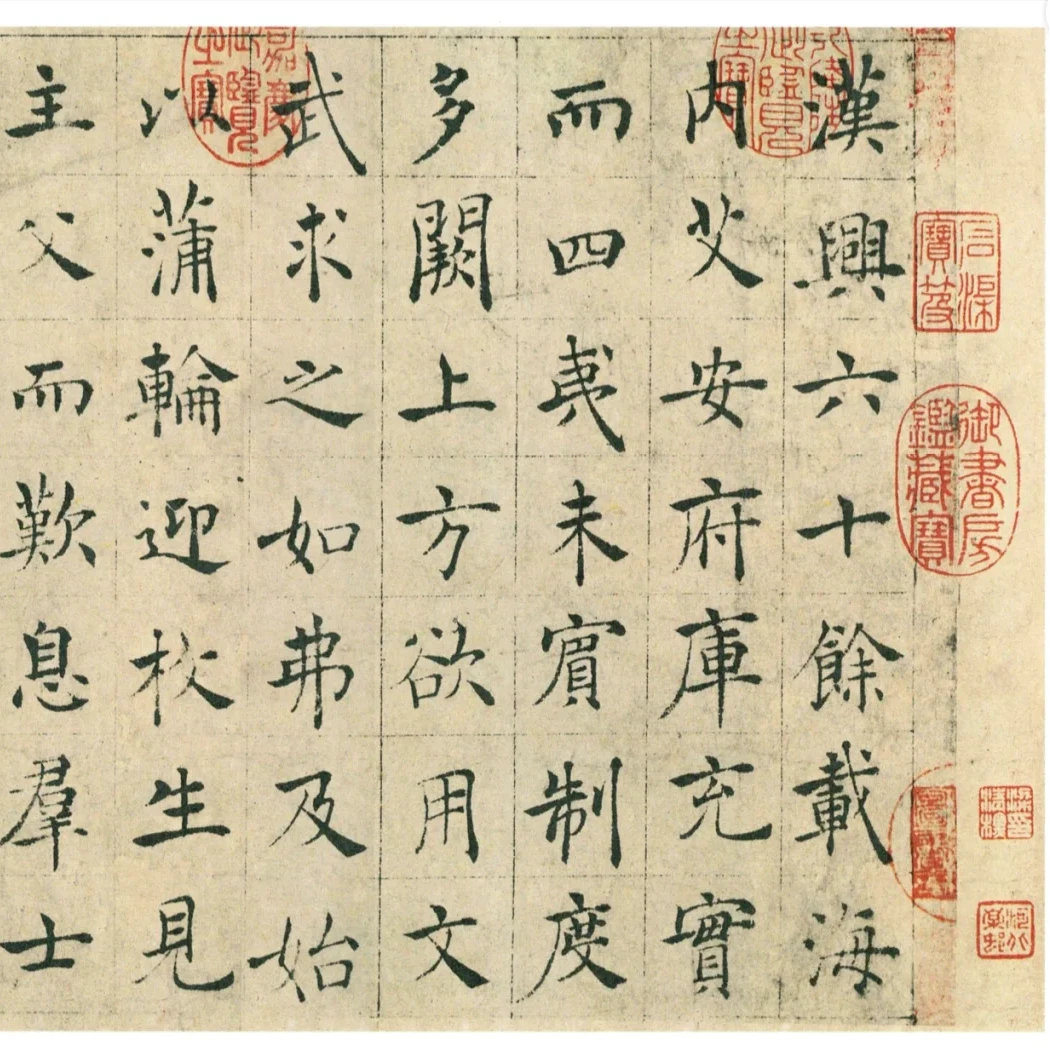 漢興六十餘載海
内艾安府庫充實
而四夷未賓制度
多闕上方欲用文
武求之如弗及始
以蒲輪迎枚生見
主父而歎息羣士
石渠寶笈
御書房鑑藏寶
嘉慶御覽之寶